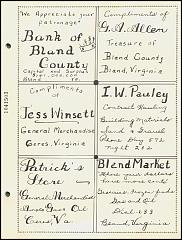 We Appreciate your
patronage
Bank of
Bland
County
Capital and Surplus
Bland, Virginia
Compliments of
G. A. Allen
Treasure of
Bland County
Bland, Virginia
Compliments
of
Jess Winsett
General Merchandise
Ceres, Virginia
I. W. Pauley
Contract Hauling
Building Materials
Sand & Gravel
Phone Day
Night
Patrick's
Store
General Merchandise
Gas Oil
Ceres, Va.
Blend Market
Where your dollars
have more cents
Groceries, Frozen foods
Gas and Oil
Dial-
Bland, Virginia